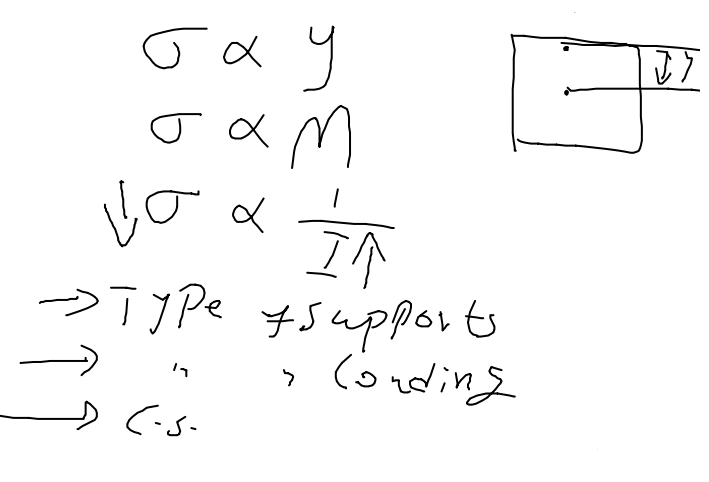 σ ∝ y
y
σ ∝ M
↓σ ∝ 1/I↑
→ Type of supports
→ " " Loading
→ C.S.